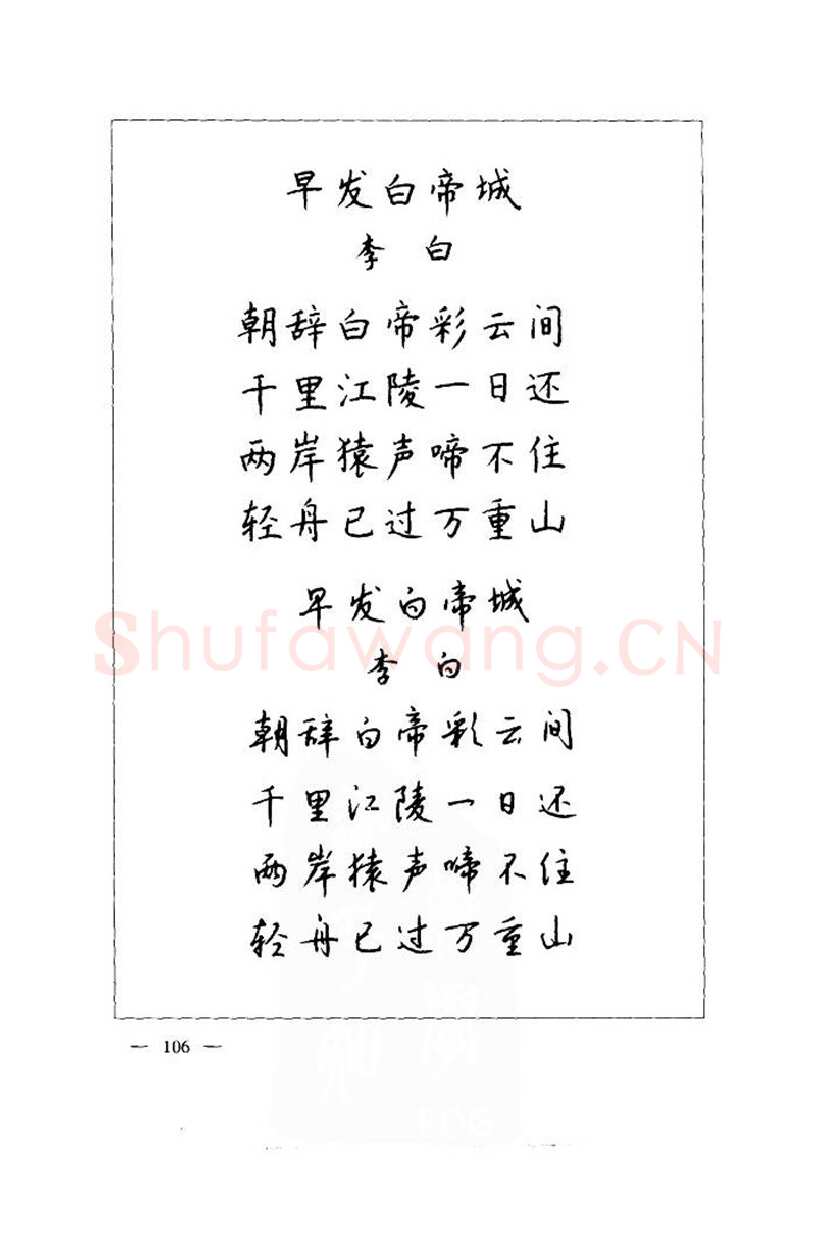 早发白帝城
李 白
朝辞白帝彩云间
千里江陵一日还
两岸猿声啼不住
轻舟已过万重山
早发白帝城
Shufawang.CN
李 白
朝辞白帝彩云间
千里江陵一日还
两岸猿声啼不住
轻舟已过万重山
— 106 —